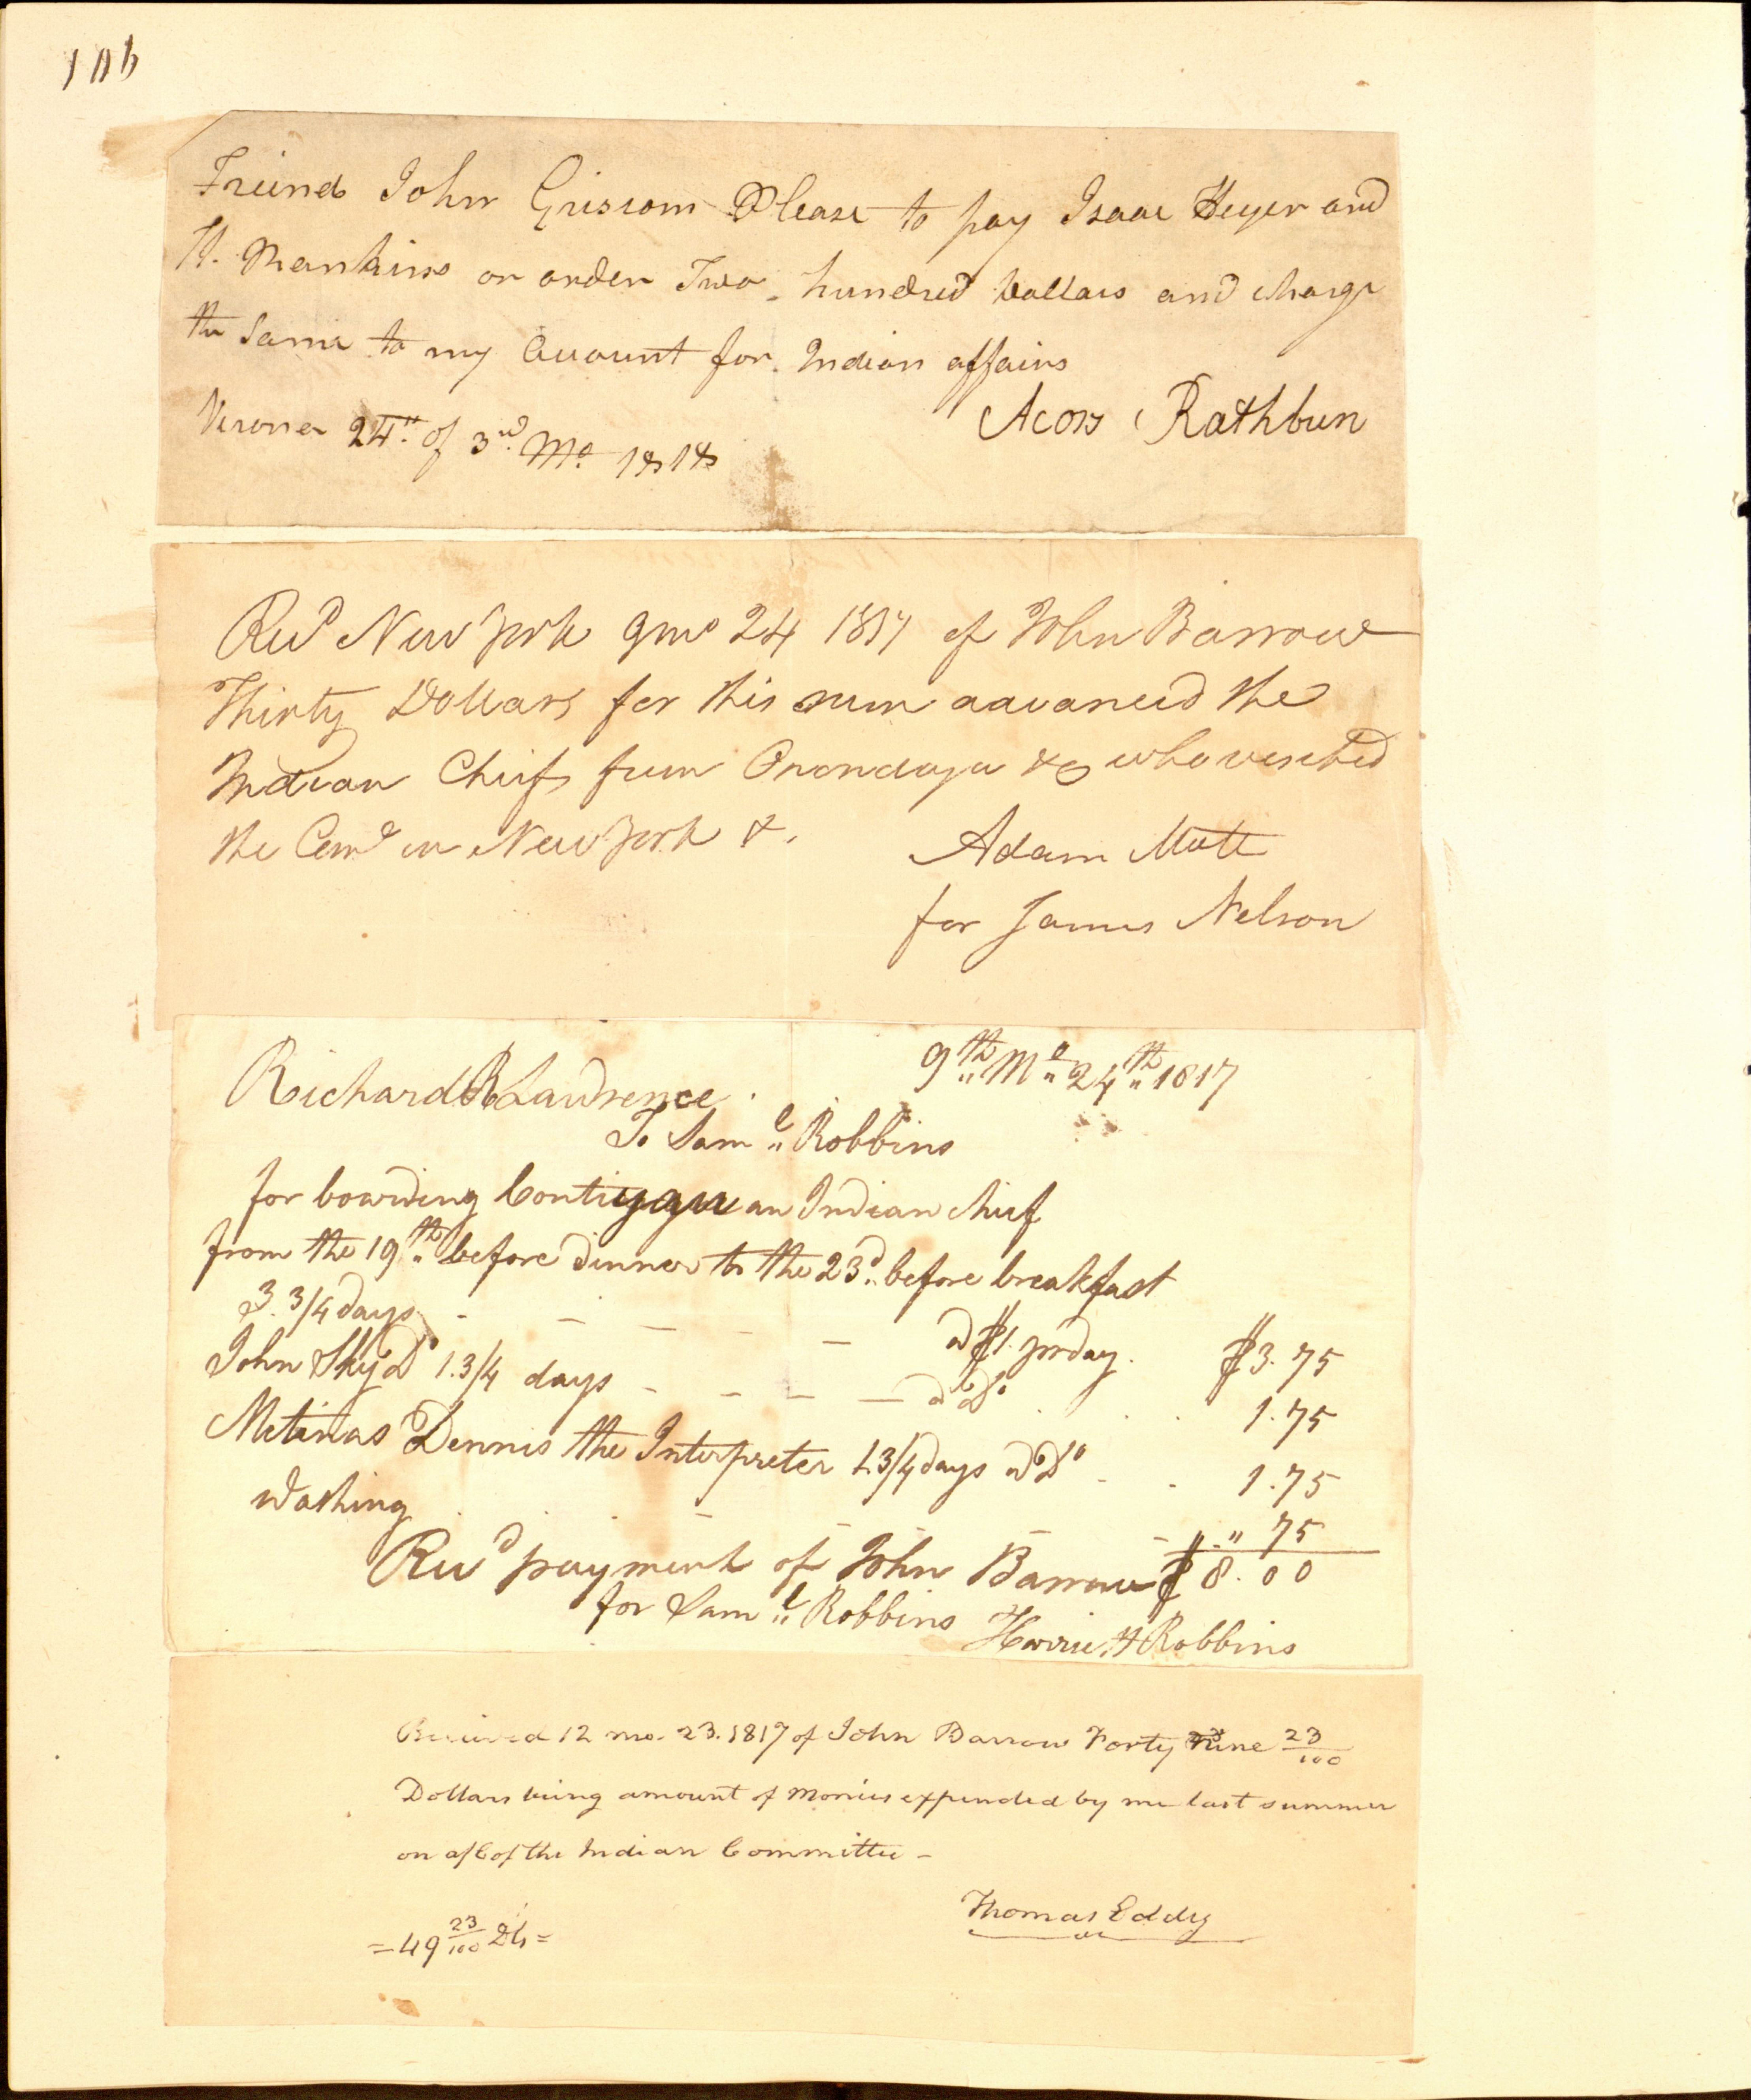 106
Freind John Griscom Please to pay Isaac Heyer and
H. Mankins or order Two hundred Dollars and charge
the Same to my account for Indian affairs
Acors Rathbun
Verona 24th of 3rd Mo 1818
Recd New York 9mo 24 1817 of John Barrow
Thirty Dollars for this sum advanced the
Indian Chiefs from Onondaga &c who visited
the Come in New York &.
Adam Mott
for James Nelson
9th Mo 24th 1817
Richard R Lawrence
To Saml Robbins
for boarding an Indian chief
from the 19th before dinner to the 23d before breakfast
3. 3/4 days - - - - - a $1. pr day. $3.75
John Sky Do 1.3/4 days - - - - a Do 1.75
Dennis the Interpreter 1.3/4 days a Do 1.75
Washing - - - " 75
Recd payment of John Barrow $8.00
for Saml Robbins Harriett Robbins
Received 12 mo. 23. 1817 of John Barrow Forty Nine 23/100
Dollars being amount of monies expended by me last summer
on a/c of the Indian Committee -
Thomas Eddy
= 49 23/100 Ds =